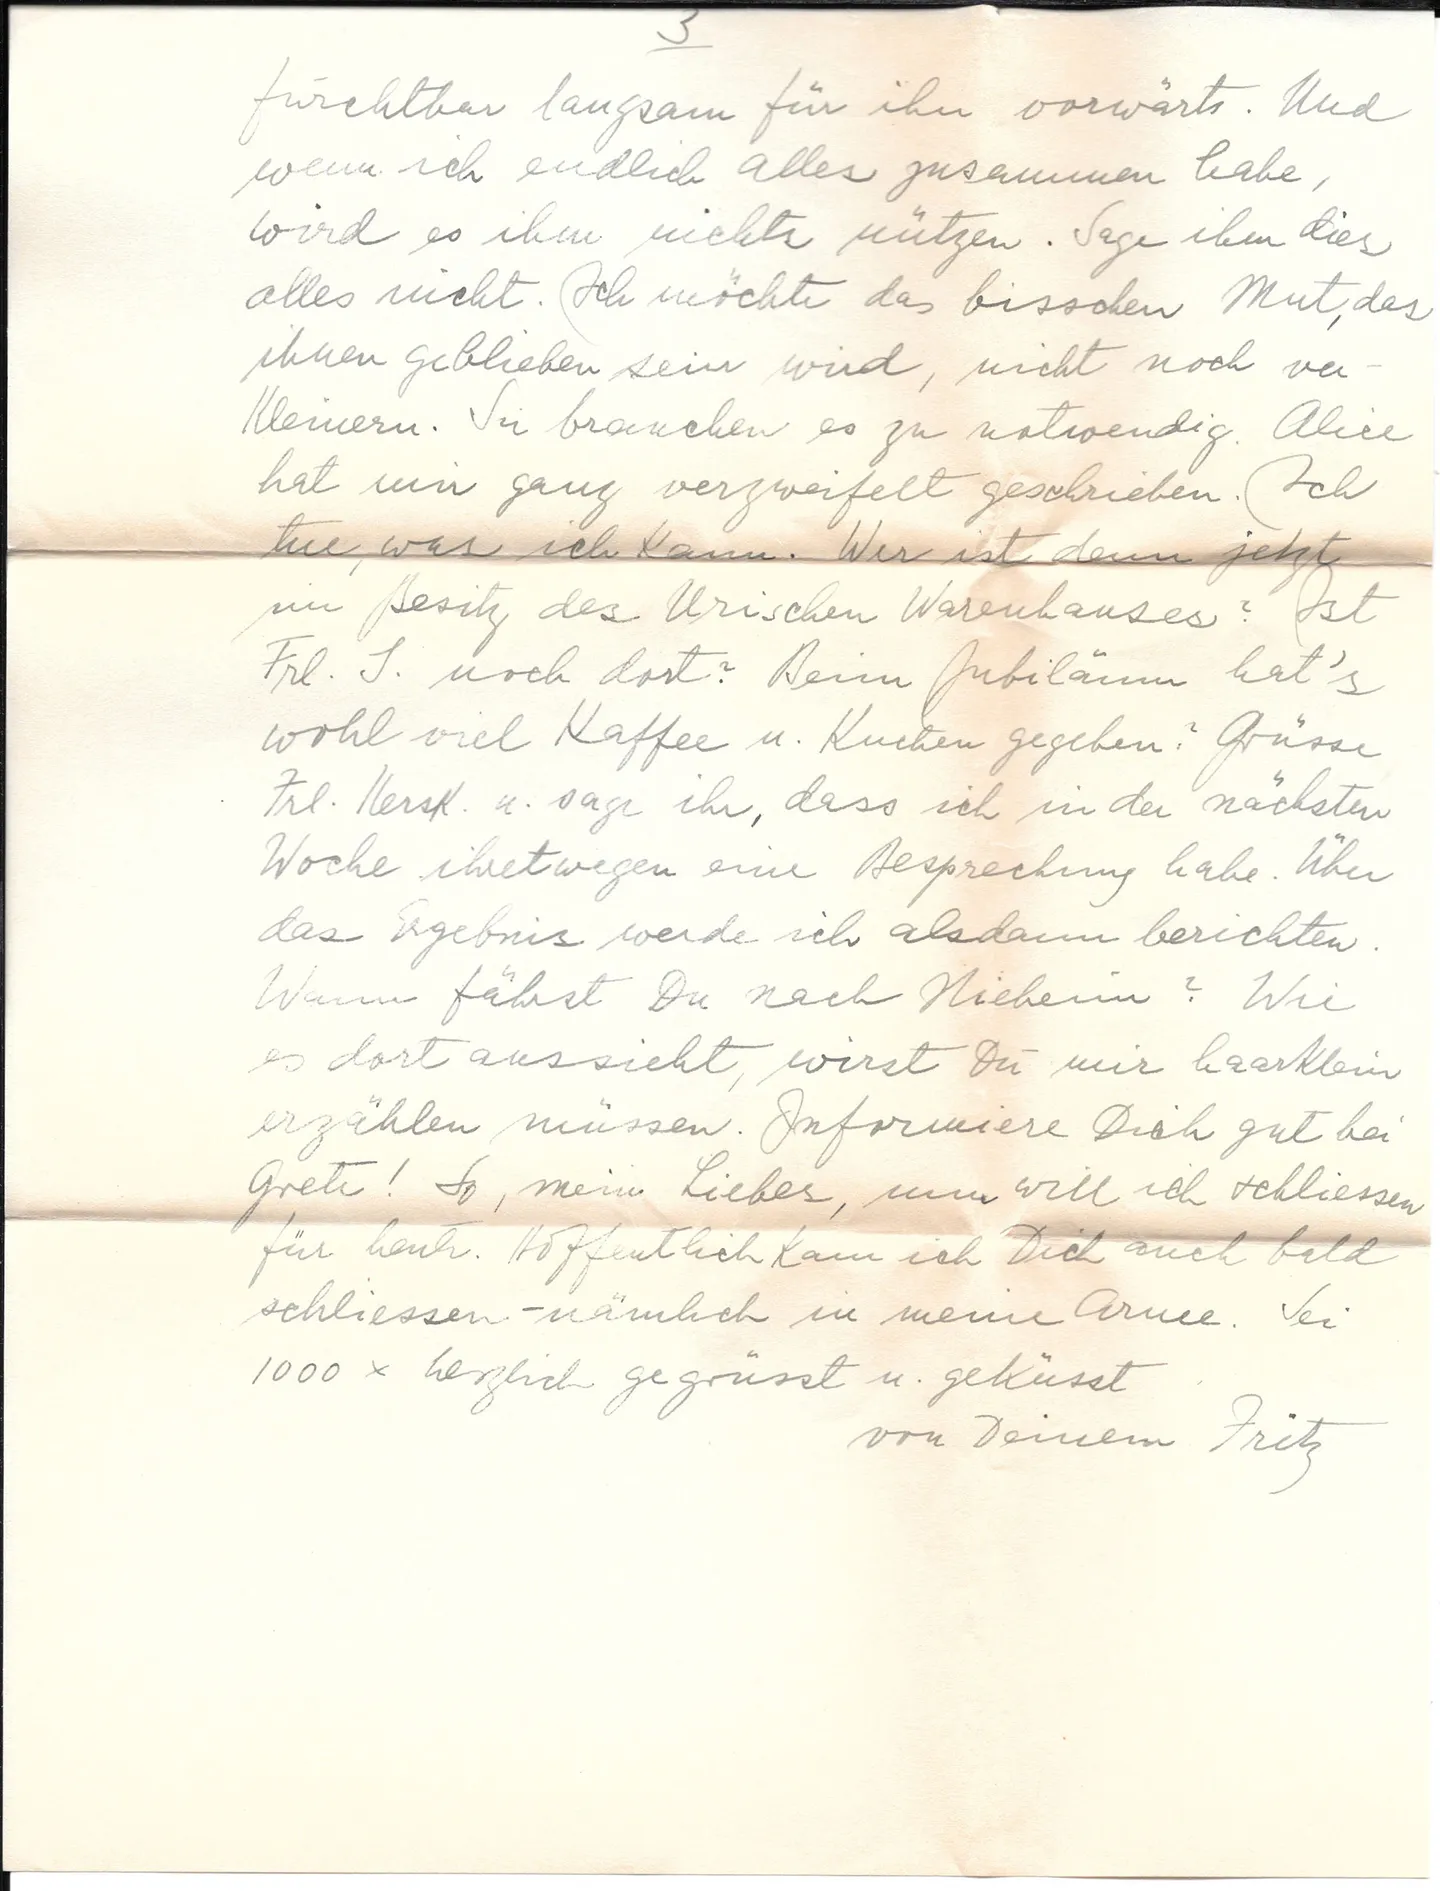 3
furchtbar langsam für ihn vorwärts. Und
wenn ich endlich alles zusammen habe,
wird es ihm nichts nützen. Sage ihm dies
alles nicht. Ich möchte das bisschen Mut, das
ihnen geblieben sein wird, nicht noch ver-
kleinern. Sie brauchen es zu notwendig. Alice
hat mir ganz verzweifelt geschrieben. Ich
tue, was ich kann. Wer ist denn jetzt
im Besitz des Urischen Warenhauses? Ist
Frl. S. noch dort? Beim Jubiläum hat's
wohl viel Kaffee u. Kuchen gegeben? Grüsse
Frl. Kersk. u. sage ihr, dass ich in der nächsten
Woche ihretwegen eine Besprechung habe. Über
das Ergebnis werde ich alsdann berichten.
Wann fährst Du nach Nieheim? Wie
es dort aussieht, wirst Du mir haarklein
erzählen müssen. Informiere Dich gut bei
Grete! So, mein Liebes, nun will ich schliessen
für heute. Hoffentlich kann ich Dich auch bald
schliessen - nämlich in meine Arme. Sei
1000 x herzlich gegrüsst u. geküsst
von Deinem Fritz